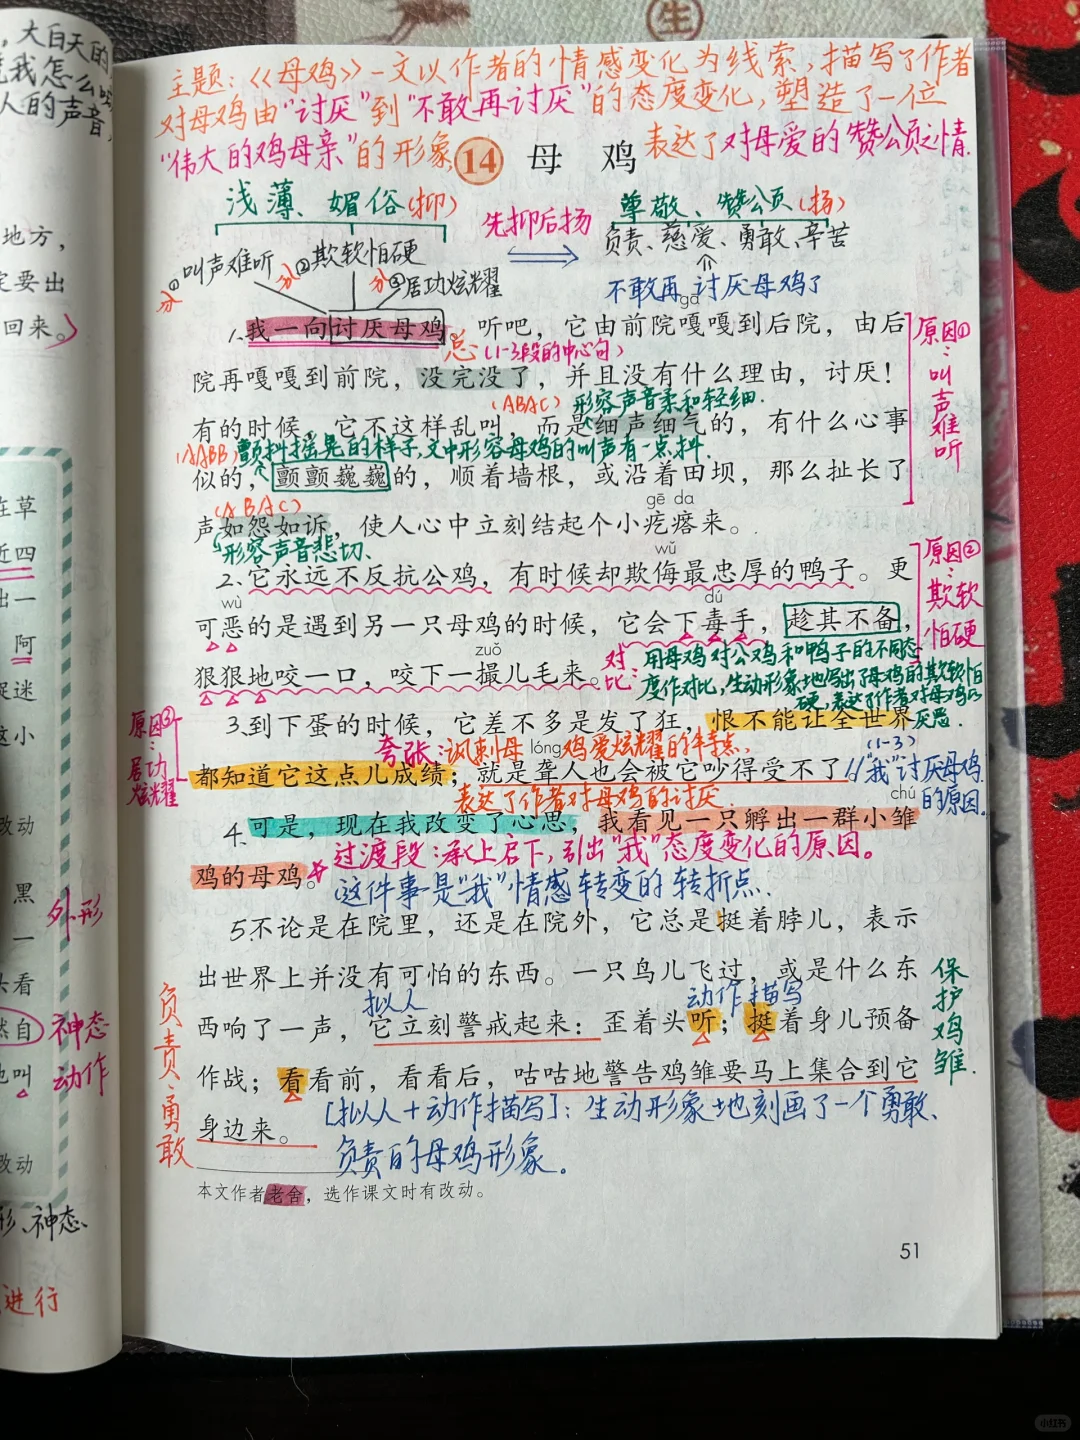 ，大白天的
人的声音，
地方，
定要出
回来。
在草
近四
出一
阿
捉迷
这小
改动
黑
外形
一
头看
然自
神态
地叫
动作
改动
形、神态、
进行
主题:《母鸡》一文以作者的情感变化为线索,描写了作者
对母鸡由“讨厌”到“不敢再讨厌”的态度变化,塑造了一位
“伟大的鸡母亲”的形象
14 母鸡
表达了对母爱的赞颂之情.
浅薄、媚俗(抑)
先抑后扬
尊敬、赞颂(扬)
负责、慈爱、勇敢、辛苦
分①叫声难听
分②欺软怕硬
分③居功炫耀
不敢再讨厌母鸡了
gā
1.我一向讨厌母鸡。听吧，它由前院嘎嘎到后院，由后
总(1-3段的中心句)
院再嘎嘎到前院，没完没了，并且没有什么理由，讨厌！
(ABAC)形容声音柔和轻细.
有的时候，它不这样乱叫，而是细声细气的，有什么心事
(AABB)颤抖摇晃的样子,文中形容母鸡的叫声有一点抖.
似的，颤颤巍巍的，顺着墙根，或沿着田坝，那么扯长了
(ABAC)
gē da
声如怨如诉，使人心中立刻结起个小疙瘩来。
形容声音悲切、
原因①:叫声难听
wǔ
2.它永远不反抗公鸡，有时候却欺侮最忠厚的鸭子。更
wù dú
可恶的是遇到另一只母鸡的时候，它会下毒手，趁其不备，
zuǒ
狠狠地咬一口，咬下一撮儿毛来。
对比:用母鸡对公鸡和鸭子的不同态
度作对比,生动形象地写出了母鸡的欺软怕
硬,表达了作者对母鸡的
厌恶.
原因②:欺软怕硬
3.到下蛋的时候，它差不多是发了狂，恨不能让全世界
夸张:讽刺母鸡爱炫耀的特点,
lóng
都知道它这点儿成绩；就是聋人也会被它吵得受不了。
表达了作者对母鸡的讨厌.
原因③:居功炫耀
(1-3)
“我”讨厌母鸡
的原因。
chú
4.可是，现在我改变了心思，我看见一只孵出一群小雏
鸡的母鸡。
过渡段:承上启下,引出“我”态度变化的原因。
这件事是“我”情感转变的转折点.
5.不论是在院里，还是在院外，它总是挺着脖儿，表示
出世界上并没有可怕的东西。一只鸟儿飞过，或是什么东
拟人
动作描写
西响了一声，它立刻警戒起来：歪着头听；挺着身儿预备
作战；看看前，看看后，咕咕地警告鸡雏要马上集合到它
身边来。
[拟人+动作描写]:生动形象地刻画了一个勇敢、
负责的母鸡形象。
负责、勇敢
保护鸡雏.
本文作者老舍，选作课文时有改动。
51
小红书